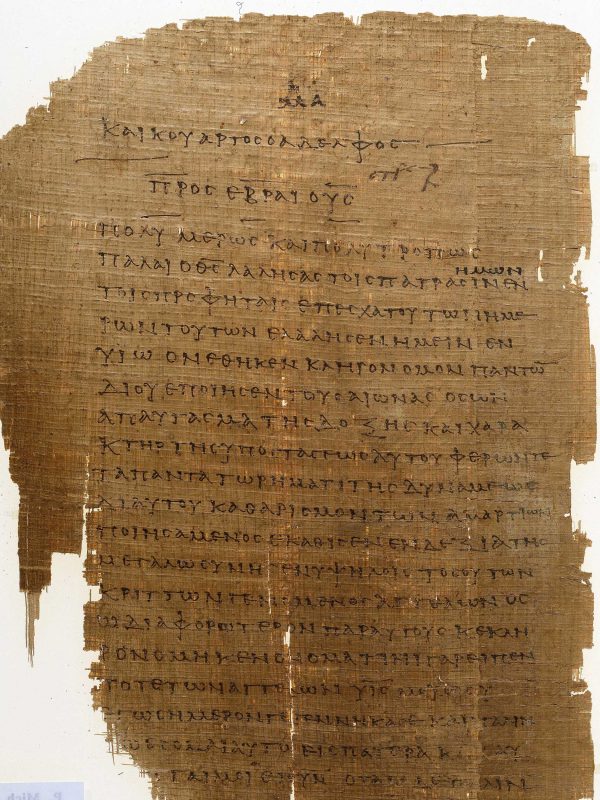 ΚΑΙ ΚΟΥΑΡΤΟϹ Ο ΑΔΕΛΦΟϹ
ΠΡΟϹ ΕΒΡΑΙΟΥϹ
ΠΟΛΥΜΕΡΩϹ ΚΑΙ ΠΟΛΥΤΡΟΠΩϹ
ΗΜΩΝ
ΠΑΛΑΙ Ο Θ̅Ϲ̅ ΛΑΛΗϹΑϹ ΤΟΙϹ ΠΑΤΡΑϹΙΝ ΕΝ
ΤΟΙϹ ΠΡΟΦΗΤΑΙϹ ΕΠ ΕϹΧΑΤΟΥ ΤΩΝ ΗΜΕ
ΡΩΝ ΤΟΥΤΩΝ ΕΛΑΛΗϹΕΝ ΗΜΕΙΝ ΕΝ
ΥΙΩ ΟΝ ΕΘΗΚΕΝ ΚΛΗΡΟΝΟΜΟΝ ΠΑΝΤΩ̅
ΔΙ ΟΥ ΕΠΟΙΗϹΕΝ ΤΟΥϹ ΑΙΩΝΑϹ ΟϹ ΩΝ
ΑΠΑΥΓΑϹΜΑ ΤΗϹ ΔΟΞΗϹ ΚΑΙ ΧΑΡΑ
ΚΤΗΡ ΤΗϹ ΥΠΟϹΤΑϹΕΩϹ ΑΥΤΟΥ ΦΕΡΩΝ ΤΕ
ΤΑ ΠΑΝΤΑ ΤΩ ΡΗΜΑΤΙ ΤΗϹ ΔΥΝΑΜΕΩϹ
ΔΙ ΑΥΤΟΥ ΚΑΘΑΡΙϹΜΟΝ ΤΩΝ ΑΜΑΡΤΙΩΝ
ΠΟΙΗϹΑΜΕΝΟϹ ΕΚΑΘΙϹΕΝ ΕΝ ΔΕΞΙΑ ΤΗϹ
ΜΕΓΑΛΩϹΥΝΗϹ ΕΝ ΥΨΗΛΟΙϹ ΤΟϹΟΥΤΩΝ
ΚΡΙΤΤΩΝ ΓΕΝΟΜΕΝΟϹ ΑΓΓΕΛΩΝ ΟϹ
Ω ΔΙΑΦΟΡΩΤΕΡΟΝ ΠΑΡ ΑΥΤΟΥϹ ΚΕΚΛΗ
ΡΟΝΟΜΗΚΕΝ ΟΝΟΜΑ ΤΙΝΙ ΓΑΡ ΕΙΠΕΝ
ΠΟΤΕ ΤΩΝ ΑΓΓΕΛΩΝ Υ̅Ϲ̅ ΜΟΥ
ϹΗΜΕΡΟΝ ΓΕΓΕΝΝΗΚΑ ϹΕ ΚΑΙ ΠΑΛΙΝ
ΕϹΟΜΑΙ ΑΥΤΩ ΕΙϹ ΠΑΤΕΡΑ ΚΑΙ ΑΥ
ΜΟΙ ΕΙϹ ΥΝ ΟΤΑΝ ΔΕ ΠΑΛΙΝ